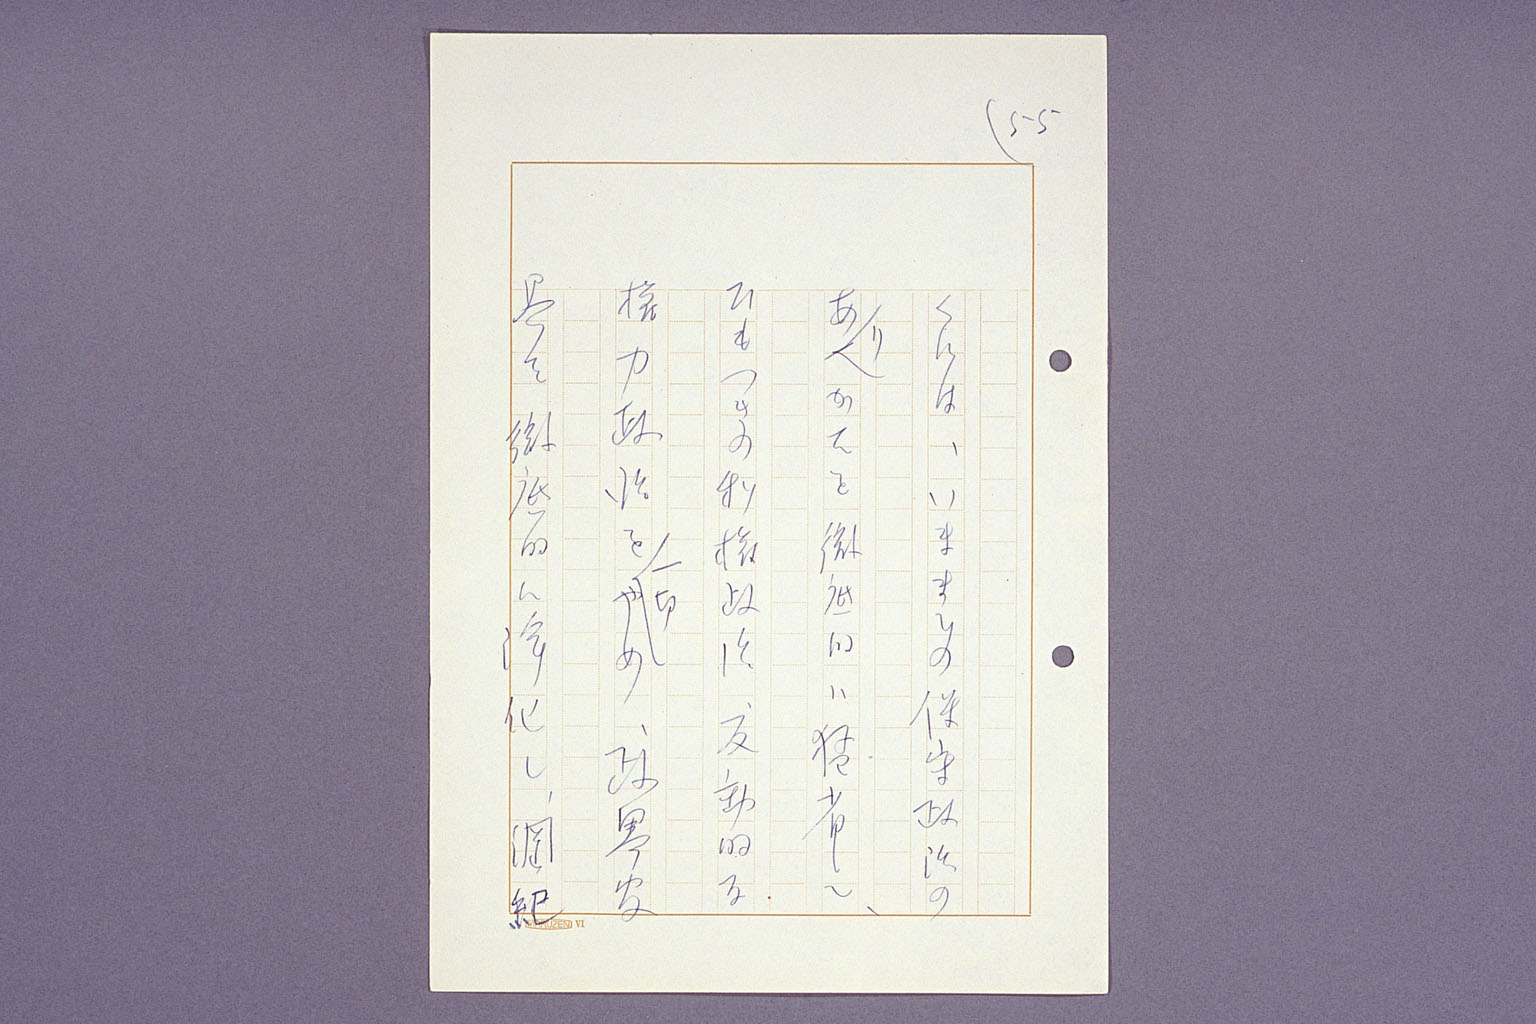 55
くには、いままでの保守政治の
ありかたを徹底的に猛省し、
ひもつきの利権政治、反動的な
権力政治を一切やめ、政界、官
界を徹底的に浄化し、綱紀
MARUZEN VI